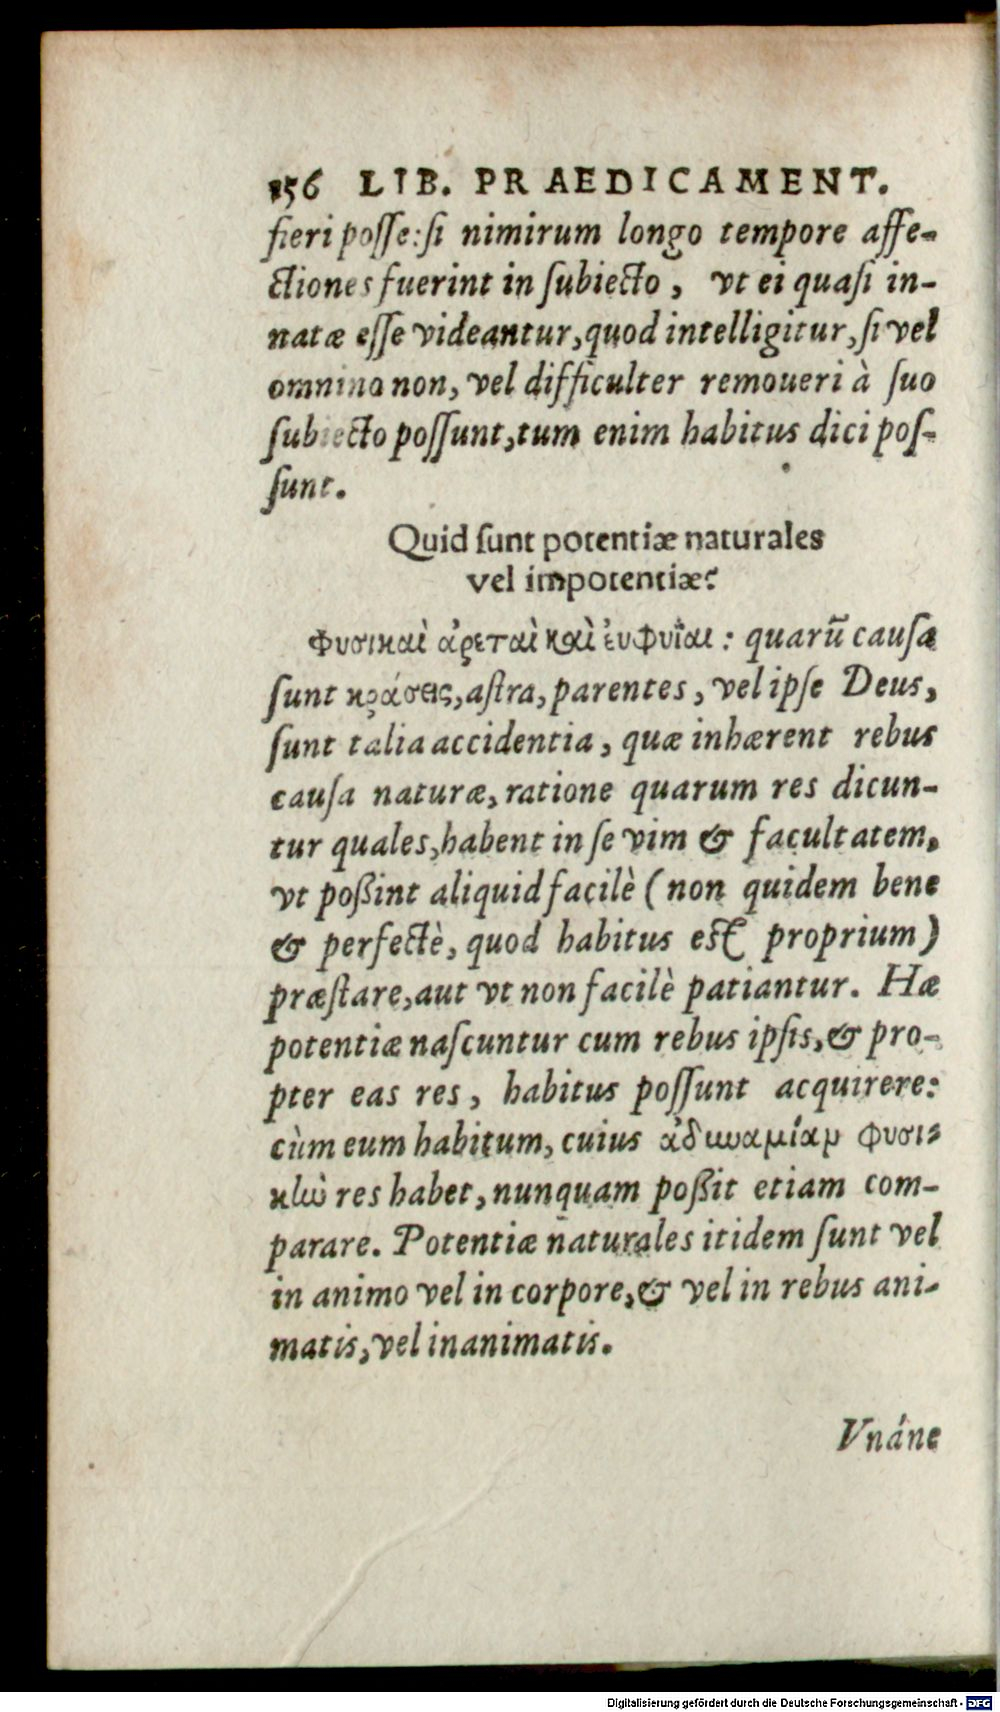 156 LIB. PRAEDICAMENT.
fieri posse: si nimirum longo tempore affe-
ctiones fuerint in subiecto, vt ei quasi in-
natæ esse videantur, quod intelligitur, si vel
omnino non, vel difficulter remoueri à suo
subiecto possunt, tum enim habitus dici pos-
sunt.
Quid sunt potentiæ naturales
vel impotentiæ?
Φυσικαὶ ἀρεταὶ καὶ ἐυφυΐαι: quarū causæ
sunt κράσεις, astra, parentes, vel ipse Deus,
sunt talia accidentia, quæ inhærent rebus
causa naturæ, ratione quarum res dicun-
tur quales, habent in se vim & facultatem,
vt poßint aliquid facilè (non quidem bene
& perfectè, quod habitus est proprium)
præstare, aut vt non facilè patiantur. Hæ
potentiæ nascuntur cum rebus ipsis, & pro-
pter eas res, habitus possunt acquirere:
cùm eum habitum, cuius ἀδυναμίαν φυσι-
κὴν res habet, nunquam poßit etiam com-
parare. Potentiæ naturales itidem sunt vel
in animo vel in corpore, & vel in rebus ani-
matis, vel inanimatis.
Vnáne
Digitalisierung gefördert durch die Deutsche Forschungsgemeinschaft - DFG